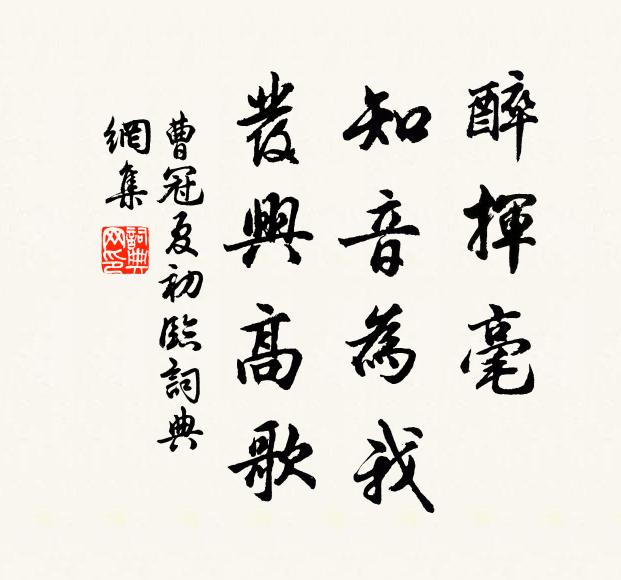 醉揮毫
知音為我
發興高歌
曹冠夏初臨詞典
網集
詞典網印